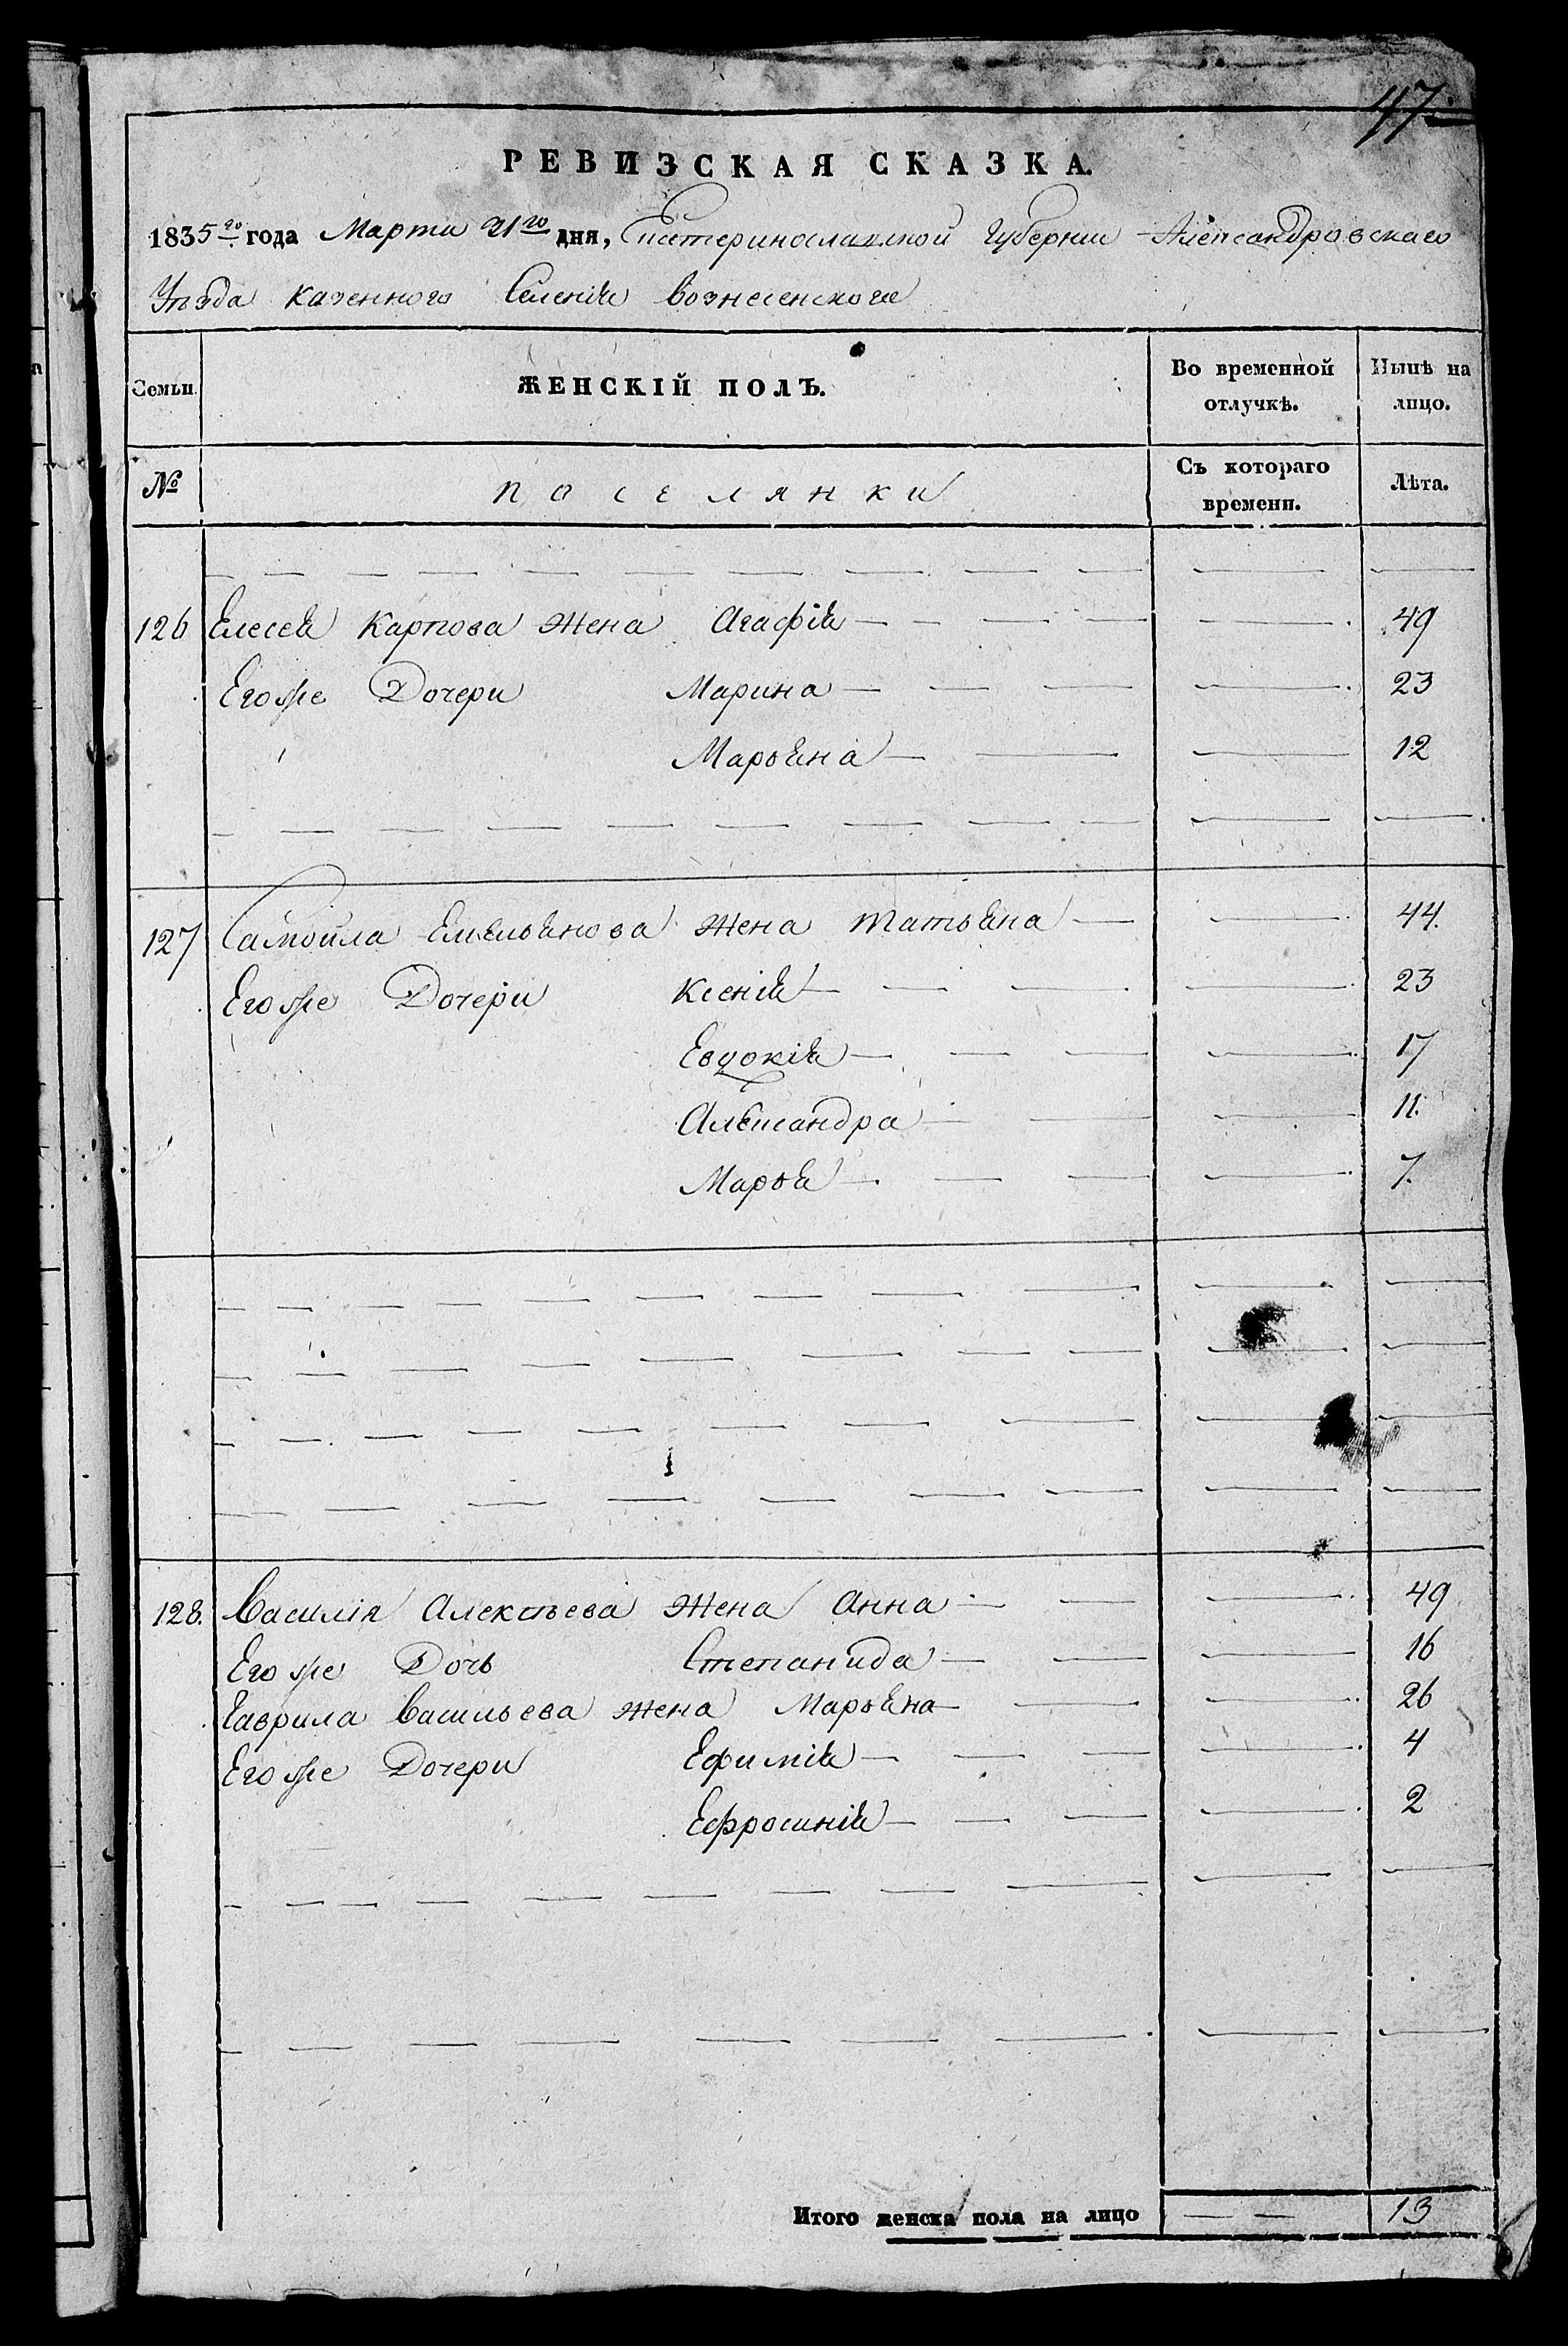 47.
РЕВИЗСКАЯ СКАЗКА.
1835го года Марта 21го дня, Екатеринославской Губернии Александровскаго
Уѣзда казенного Селенія Вознесенского
Семьи. ЖЕНСКІЙ ПОЛЪ. Во временной отлучкѣ. Нынѣ на лицо.
№ поселянки Съ котораго времени. Лѣта.
126 Елесея Карпова жена Агафія 49
Егоже Дочери Марина 23
Марьяна 12
127 Самойла Емельянова жена Татьяна 44.
Егоже Дочери Ксенія 23
Евдокія 17
Александра 11.
Марья 7.
128. Василія Алексѣева жена Анна 49
Его же Дочь Степанида 16
Гаврила Васильева жена Марьяна 26
Егоже Дочери Ефимія 4
Ефросинія 2
Итого женска пола на лицо 13